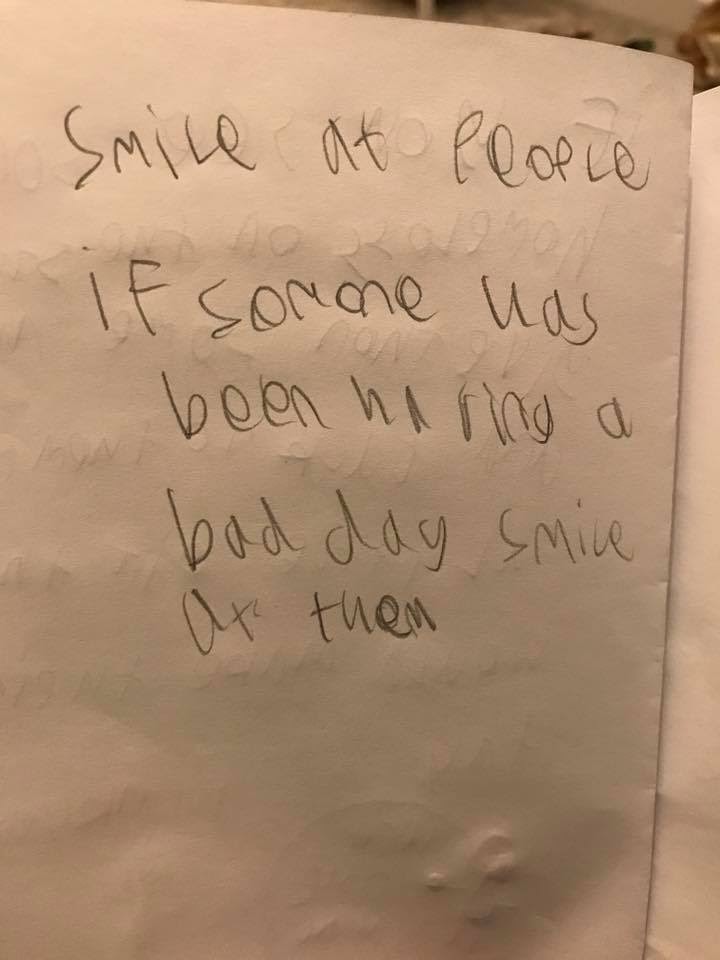 Smile at People
if somone has
been having a
bad day smile
at them